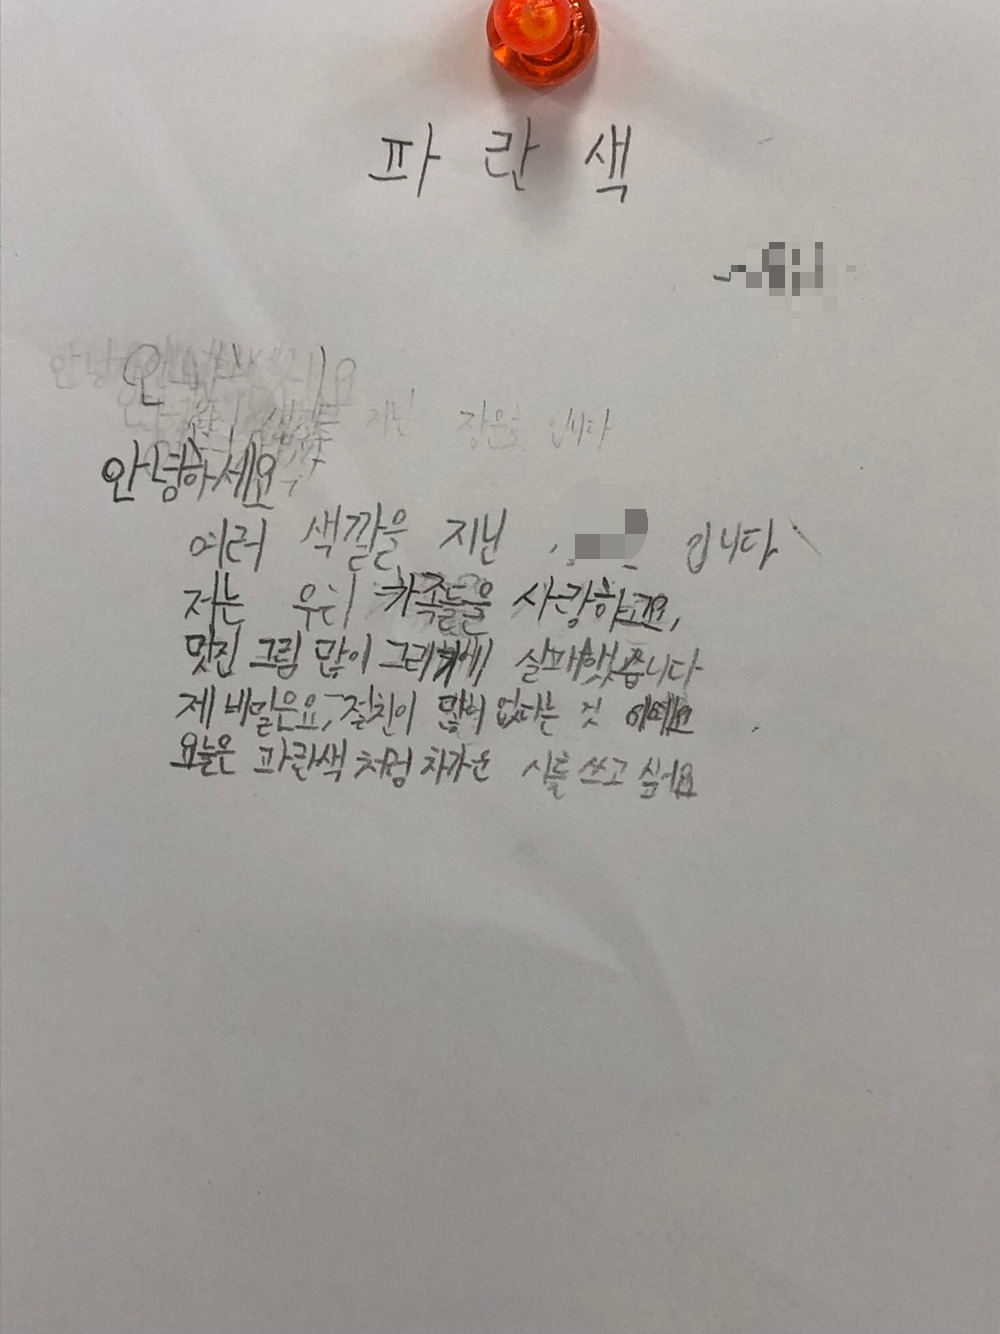 파란색
안녕하세요
여러 색깔을 지닌 입니다
저는 우리 가족들을 사랑하고요,
멋진 그림 많이 그리기에 실패했습니다
제 비밀은요, 절친이 많이 없다는 것 이에요
오늘은 파란색 처럼 차가운 시를 쓰고 싶어요